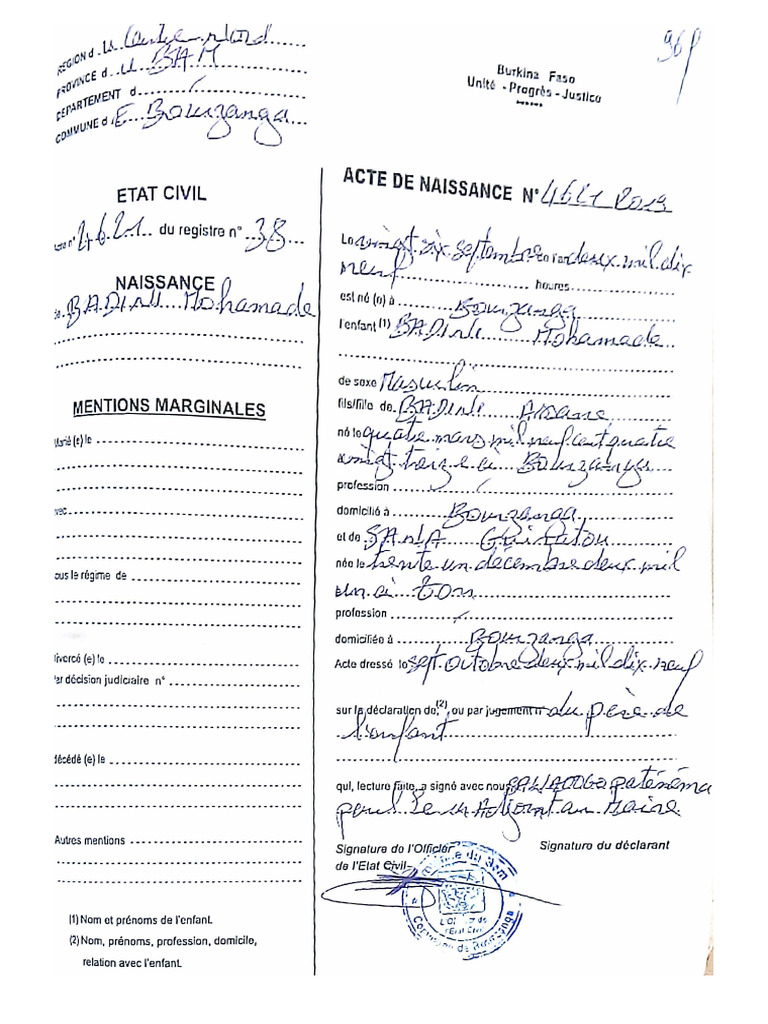 REGION d u Centre nord
PROVINCE d u BAM
DEPARTEMENT d
COMMUNE d E Bourzanga
96
Burkina Faso
Unité - Progrès - Justice
ETAT CIVIL
acte n° 4621 du registre n° 38
NAISSANCE
de BADINI Mohamade
MENTIONS MARGINALES
Marié (e) le
avec
sous le régime de
divorcé (e) le
par décision judiciaire n°
décédé (e) le
Autres mentions
(1) Nom et prénoms de l'enfant.
(2) Nom, prénoms, profession, domicile,
relation avec l'enfant.
ACTE DE NAISSANCE N° 4621 2019
Le vingt six septembre en l'an deux mil dix
neuf heures
est né (e) à Bourzanga
l'enfant (1) BADINI Mohamade
de sexe Masculin
fils/fille de BADINI
né le quatre mars mil neuf cent quatre
vingt treize à Bourzanga
profession
domicilié à Bourzanga
et de
née le trente un décembre deux mil
un à
profession
domiciliée à Bourzanga
Acte dressé le sept octobre deux mil dix neuf
sur la déclaration de, (2) ou par jugement n° du père de
l'enfant
qui, lecture faite, a signé avec nous
Adjoint au Maire
Signature de l'Officier
de l'Etat Civil
Signature du déclarant
Province du Bam
L'Officier de
l'Etat Civil
Commune de Bourzanga